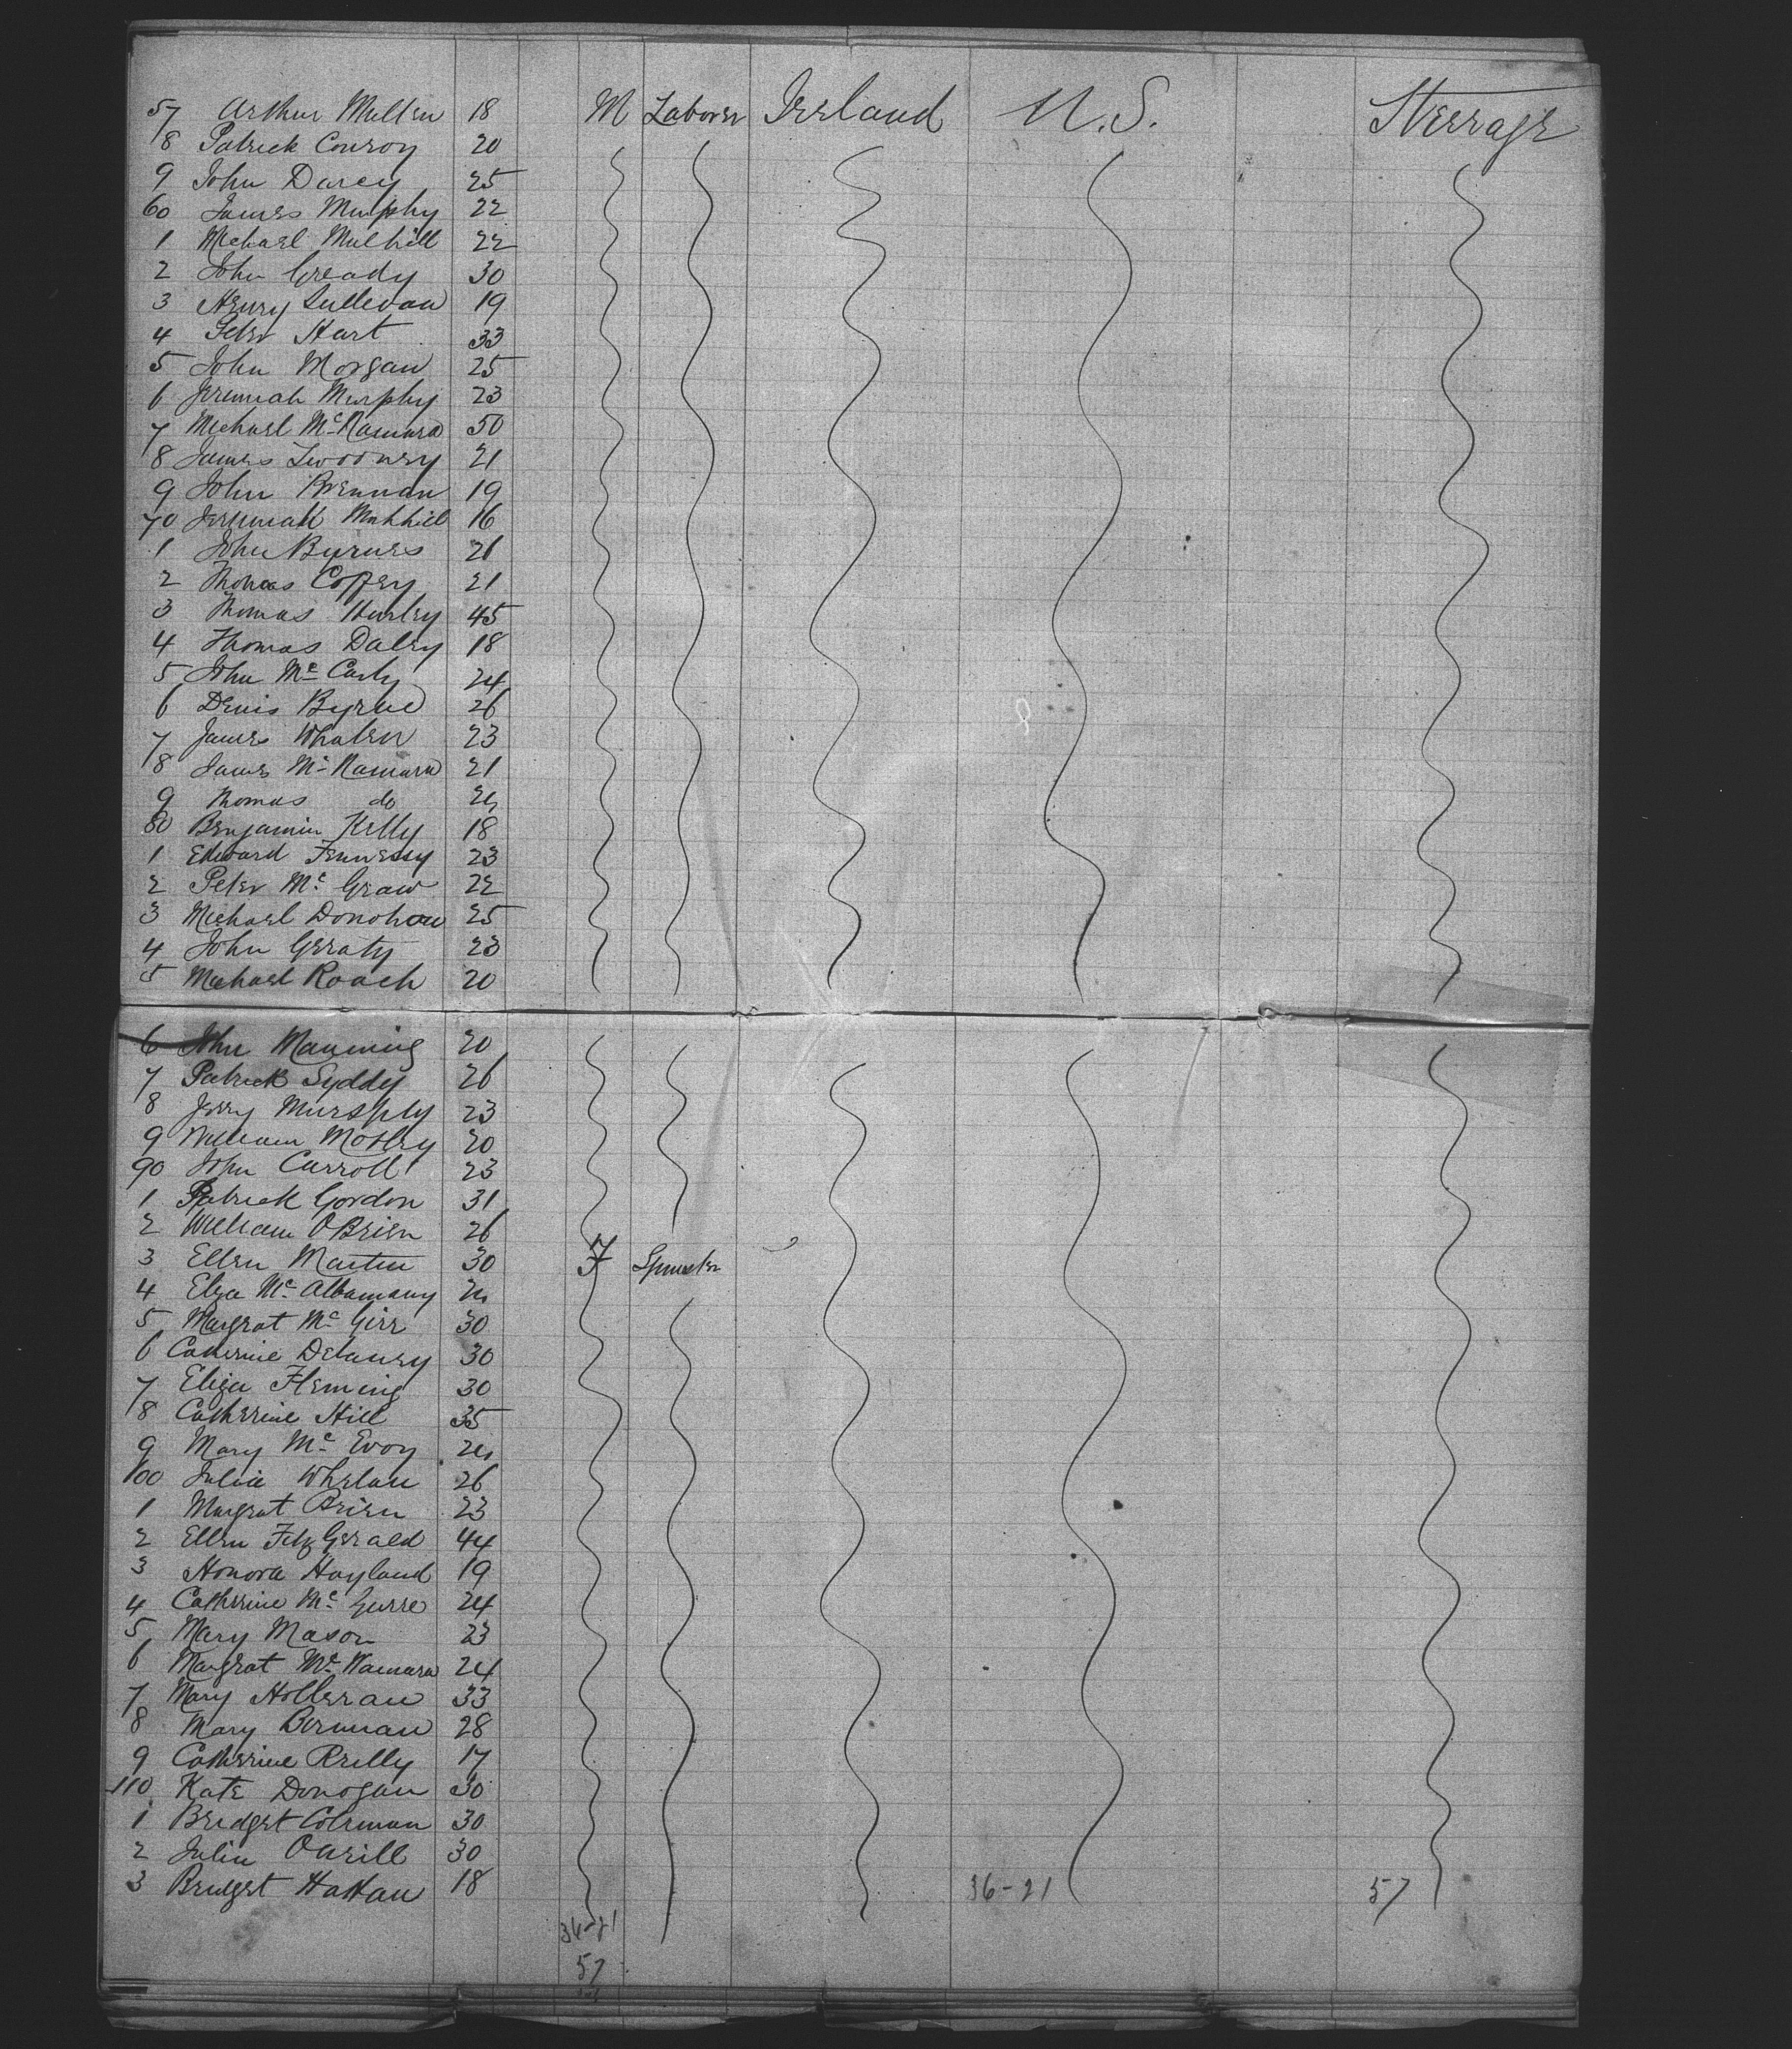 57 Arthur Mullen 18 M Laborer Ireland U.S. Sterrage
8 Patrick Conroy 20
9 John Darcy 25
60 James Murphy 22
1 Michael Mulhill 22
2 John Gready 30
3 Henry Sullevan 19
4 Peter Hart 33
5 John Morgan 25
6 Jeremiah Murphy 23
7 Michael Mc Namara 50
8 James Twoomey 21
9 John Brennan 19
70 Jeremiah 16
1 John Byrnes 26
2 Thomas Coffey 21
3 Thomas Hurley 45
4 Thomas Daley 18
5 John Mc Carty 24
6 Denis Byrne 26
7 James Whalen 23
8 James Mc Namara 21
9 Thomas do
80 Benjamin Kelly 18
1 Edward Fennessy 23
2 Peter Mc Graw 22
3 Michael Donohou 25
4 John Geraty 23
5 Michael Roach 20
6 John Manning 20
7 Patrick Syddy 26
8 Jerry Mursphy 23
9 William Mosley 20
90 John Carroll 23
1 Patrick Gordon 31
2 William OBrien 26
3 Ellen Martin 30 F Spinster
4 Elza Mc
5 Margrat Mc Girr 30
6 Catherine Delaney 30
7 Eliza Fleming 30
8 Catherine Hill 35
9 Mary Mc Evoy
100 Julia Whelan 26
1 Margrat Brien 23
2 Ellen FitzGerald 44
3 Honora Hayland 19
4 Catherine Mc Gurre 24
5 Mary Mason 23
6 Margrat Mc Namara 24
7 Mary Holleran 33
8 Mary Brennan 28
9 Catherine Reilly 17
110 Kate Donogan 30
1 Bridget Coleman 30
2 Julia Oneill 30
3 Bridget Hattan 18 36-21 57
36-21
57